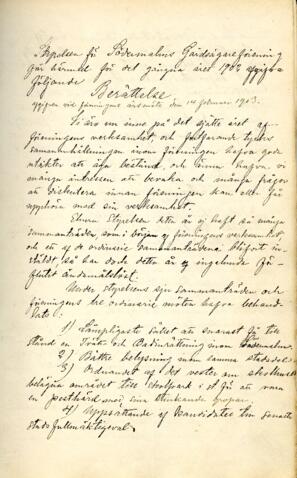 Styrelsen för Södermalms Gårdsägareförening
får härmed för det gångna året 1902 afgifva
följande
Berättelse
uppläst vid föreningens årsmöte den 14 februari 1903.
Vi äro nu inne på det sjätte året af
föreningens verksamhet, och fortfarande tyckes
sammanhållningen inom föreningen hafva goda
utsikter att äga bestånd, och ännu hafva vi
många intressen att bevaka och många frågor
att diskutera innan föreningen kan eller får
upphöra med sin verksamhet.
Ehuru Styrelsen detta år ej haft så många
sammanträden som i början af föreningens verksamhet,
och ett af de ordinarie sammanträdena blifvit in-
stäldt, så har dock detta år ej ingalunda för-
flutit ändamålslöst.
Under styrelsens sju sammanträden och
föreningens tre ordinarie möten hafva behand-
lats:
1) Lämpligaste sättet att snarast få till
stånd en Tvätt- och Badinrättning inom Södermalm.
2) Bättre belysning inom samma stadsdel.
3) Ordnandet af det vester om
belägna området till i st. f. att vara
en pesthärd med sina stinkande gropar.
4) Uppsättande af kandidater till senaste
stadsfullmäktigeval.